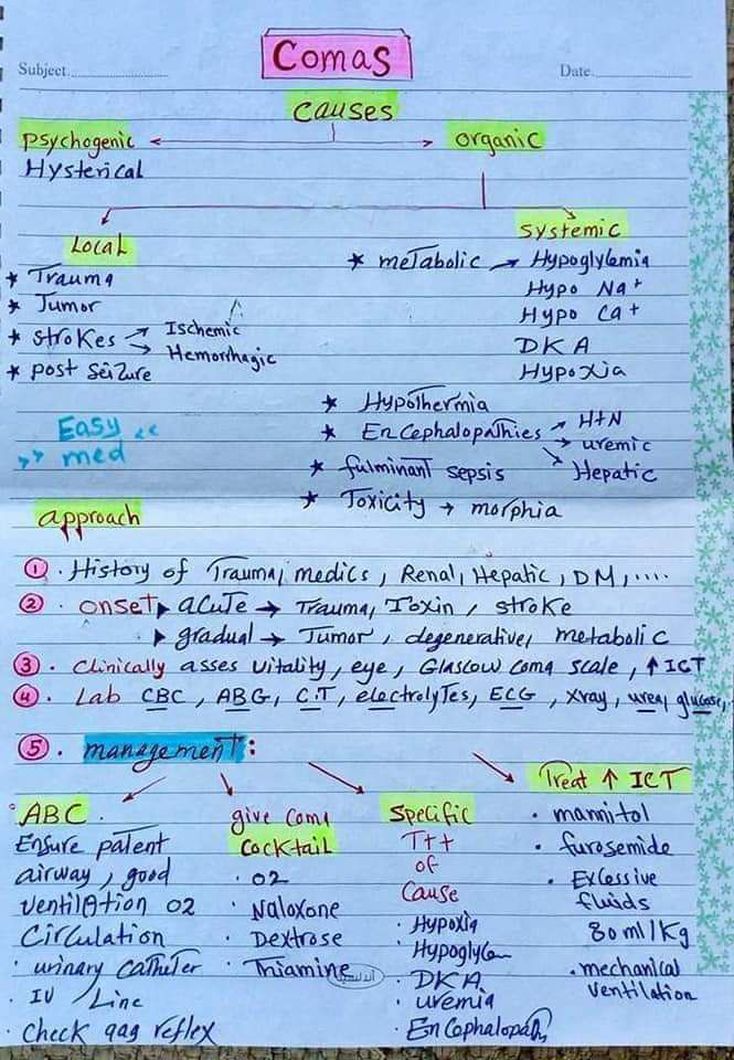 Comas
Subject
Date
causes
psychogenic
organic
Hysterical
Local
Systemic
* Trauma
* Tumor
* strokes → Ischemic
→ Hemorrhagic
* post seizure
* metabolic → Hypoglycemia
Hypo Na+
Hypo Ca+
DKA
Hypoxia
* Hypothermia
* Encephalopathies → HTN
→ uremic
→ Hepatic
* fulminant sepsis
* Toxicity → morphia
Easy <<
>> med
approach
① . History of Trauma, medics, Renal, Hepatic, DM, ....
② . onset ▸ acute → Trauma, Toxin, stroke
▸ gradual → Tumor, degenerative, metabolic
③ . Clinically asses vitality, eye, Glascow coma scale, ↑ ICT
④ . Lab CBC, ABG, C.T, electrolytes, ECG, Xray, urea, glucose,
⑤ . management:
ABC.
Ensure patent
airway, good
ventilation O2
Circulation
. urinary catheter
. IV Line
. check gag reflex
give coma
cocktail
. O2
. Naloxone
. Dextrose
. Thiamine
Specific
Ttt
of
Cause
. Hypoxia
. Hypoglycem
. DKA
. uremia
. Encephalopath
Treat ↑ ICT
. mannitol
. furosemide
. Excessive
fluids
80 ml/Kg
. mechanical
ventilation